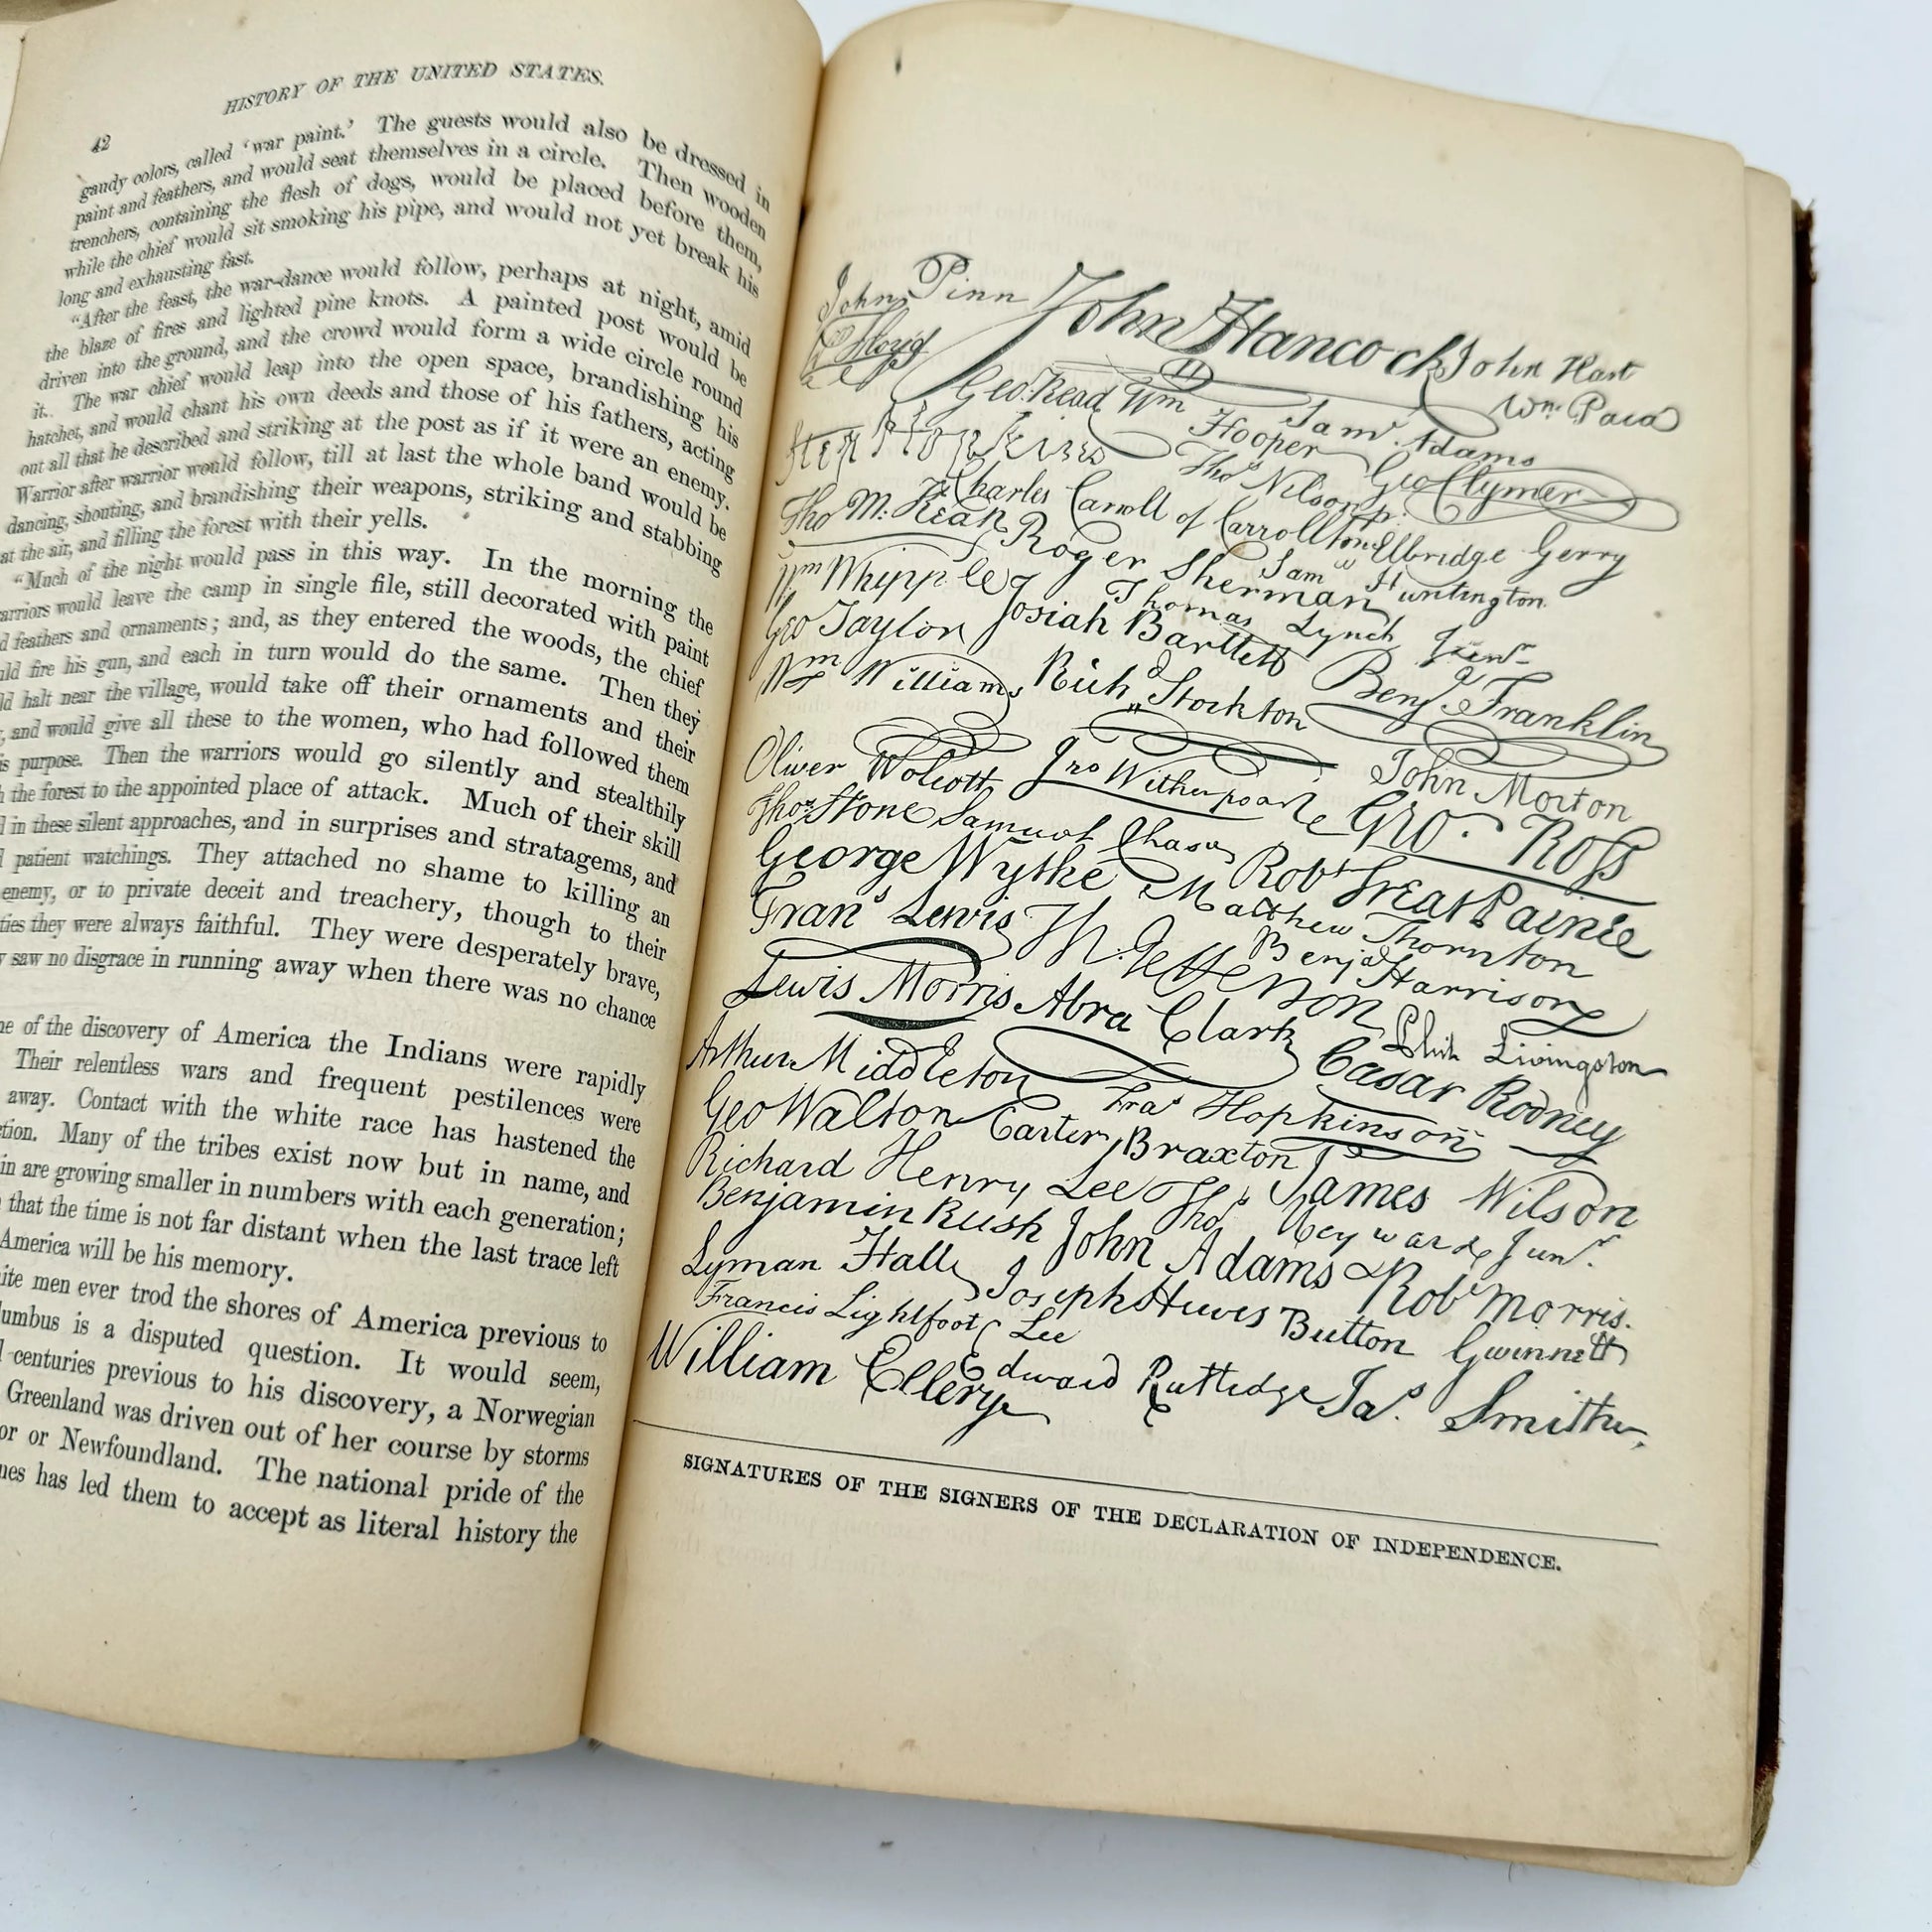 42
HISTORY OF THE UNITED STATES.
gaudy colors, called 'war paint.' The guests would also be dressed in
paint and feathers, and would seat themselves in a circle. Then wooden
trenchers, containing the flesh of dogs, would be placed before them,
while the chief would sit smoking his pipe, and would not yet break his
long and exhausting fast.
"After the feast, the war-dance would follow, perhaps at night, amid
the blaze of fires and lighted pine knots. A painted post would be
driven into the ground, and the crowd would form a wide circle round
it. The war chief would leap into the open space, brandishing his
hatchet, and would chant his own deeds and those of his fathers, acting
out all that he described and striking at the post as if it were an enemy.
Warrior after warrior would follow, till at last the whole band would be
dancing, shouting, and brandishing their weapons, striking and stabbing
at the air, and filling the forest with their yells.
"Much of the night would pass in this way. In the morning the
warriors would leave the camp in single file, still decorated with paint
feathers and ornaments; and, as they entered the woods, the chief
fire his gun, and each in turn would do the same. Then they
halt near the village, would take off their ornaments and their
and would give all these to the women, who had followed them
purpose. Then the warriors would go silently and stealthily
the forest to the appointed place of attack. Much of their skill
in these silent approaches, and in surprises and stratagems, and
patient watchings. They attached no shame to killing an
enemy, or to private deceit and treachery, though to their
ties they were always faithful. They were desperately brave,
saw no disgrace in running away when there was no chance
of the discovery of America the Indians were rapidly
Their relentless wars and frequent pestilences were
away. Contact with the white race has hastened the
tion. Many of the tribes exist now but in name, and
in are growing smaller in numbers with each generation;
that the time is not far distant when the last trace left
America will be his memory.
ite men ever trod the shores of America previous to
lumbus is a disputed question. It would seem,
centuries previous to his discovery, a Norwegian
Greenland was driven out of her course by storms
or or Newfoundland. The national pride of the
nes has led them to accept as literal history the
John Pinn John Hancock John Hart
Wm Floyd Geo. Read Wm Hooper Saml. Adams Wm. Paca
Step Hopkins Thos Nelson jr. Geo Clymer
Charles Carroll of Carrollton Elbridge Gerry
Tho M: Kean Roger Sherman Saml Huntington
Wm Whipple Thomas Lynch Junr
Geo Taylor Josiah Bartlett Benj. Franklin
Wm Williams Richd Stockton John Morton
Oliver Wolcott Jno Witherspoon Geo. Ross
Thos Stone Samuel Chase Robt Treat Paine
George Wythe Matthew Thornton
Frans Lewis Th. Jefferson Benja Harrison
Lewis Morris Abra Clark Phil. Livingston
Arthur Middleton Fras Hopkinson Casar Rodney
Geo Walton Carter Braxton James Wilson
Richard Henry Lee Thos Heyward Junr.
Benjamin Rush John Adams Robt Morris.
Lyman Hall Joseph Hewes Button Gwinnett
Francis Lightfoot Lee
William Ellery Edward Rutledge Jas. Smith
SIGNATURES OF THE SIGNERS OF THE DECLARATION OF INDEPENDENCE.